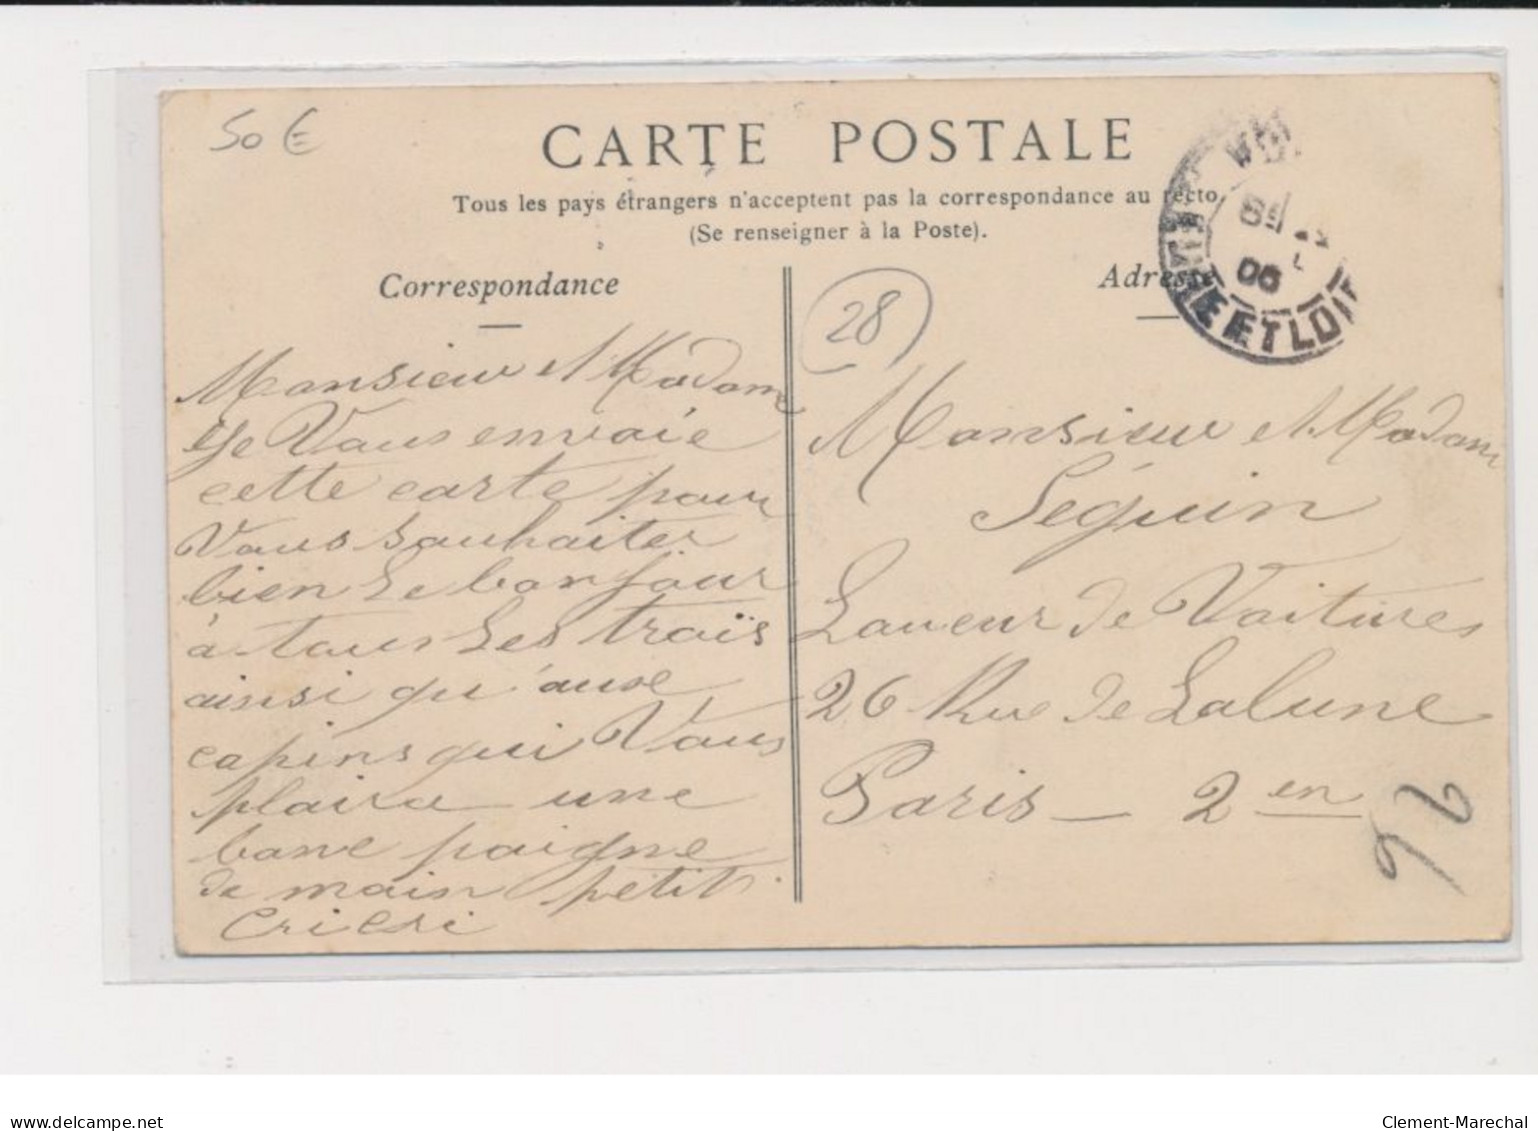 50 €
CARTE POSTALE
Tous les pays étrangers n'acceptent pas la correspondance au recto
(Se renseigner à la Poste).
Correspondance
Adresse
EURE ET LOIR
06
28
Monsieur et Madame
Je Vous envoie
cette carte pour
Vous souhaiter
bien le bonjour
à tous les trois
ainsi qu'aux
copins qui Vous
plaira une
bone poigne
de main petit
Cri Cri
Monsieur et Madame
Séguin
Laveur de Voitures
26 Rue de Lalune
Paris — 2en
26
www.delcampe.net
Clement-Marechal